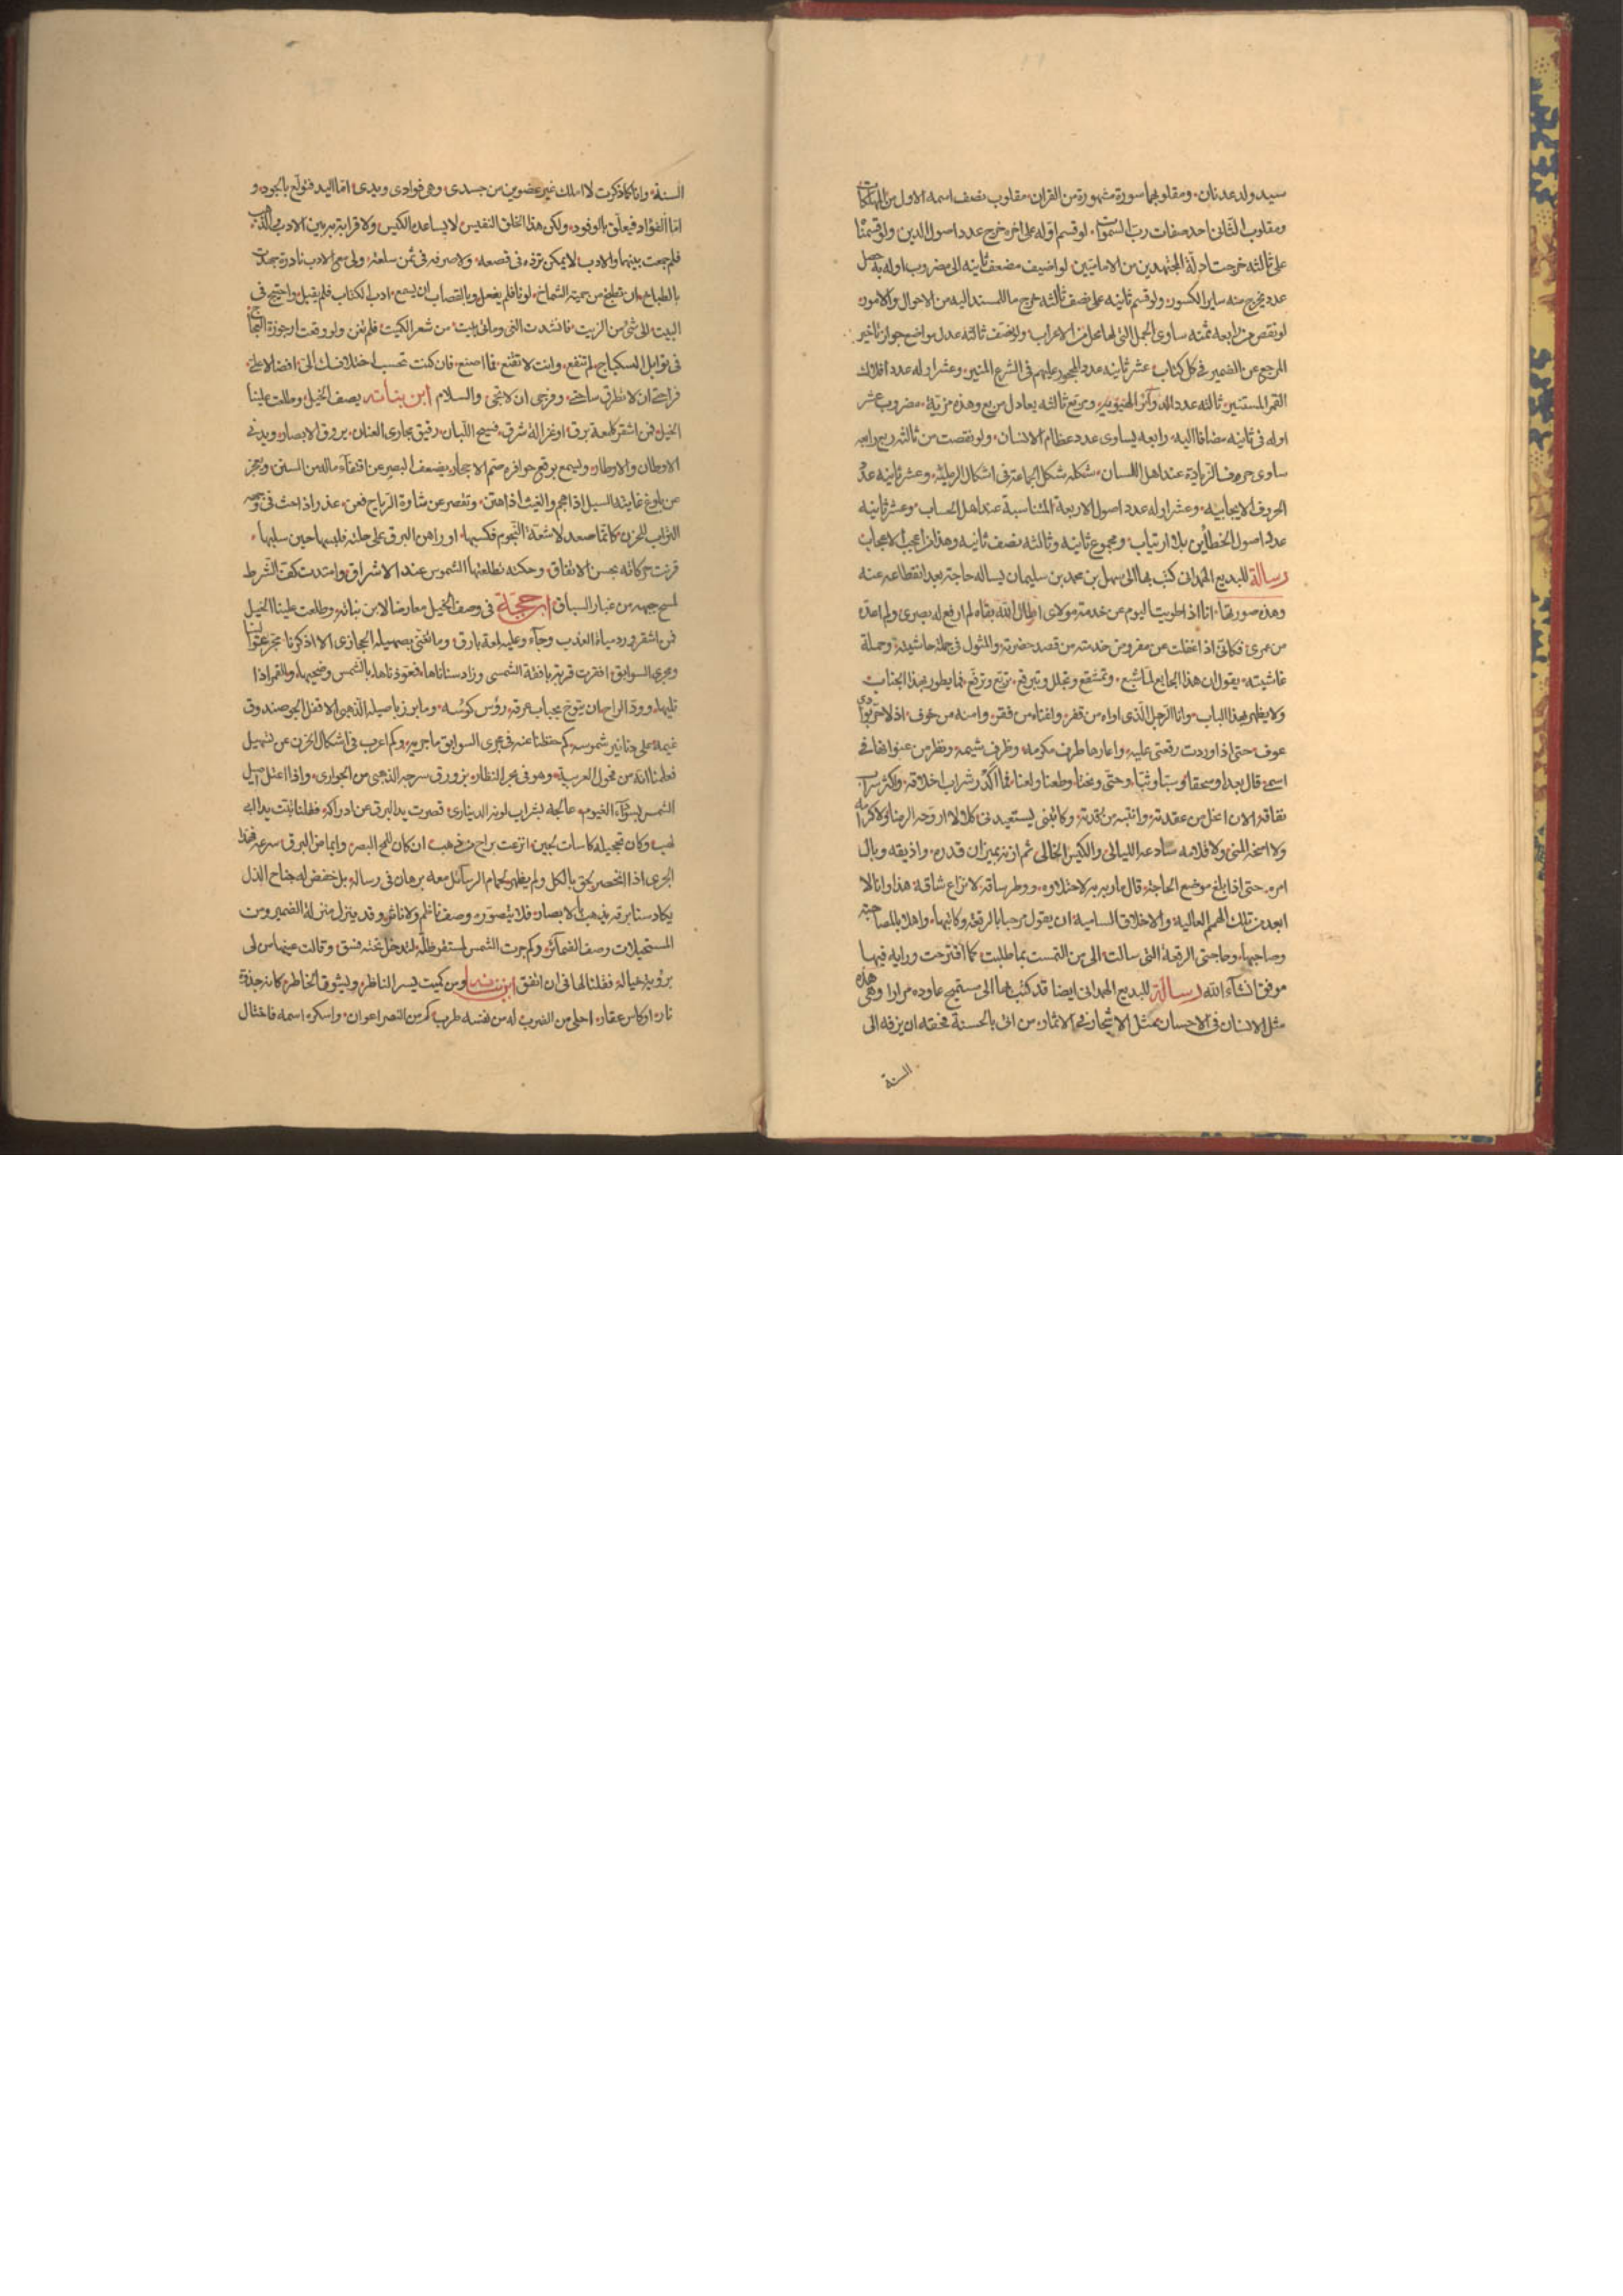 سيد ولد عدنان ومقلوبهما سورة مشهورة من القران مقلوب نصف اسمه الاول من المهلكات
ومقلوب الثاني احد صفات رب السموات لو قسم اوله على اخره خرج عدد اصول الدين ولو قسمنا
على ثالثه خرجت ادلة المجتهدين من الاماميين لو اضيف مضعف ثانيه الى مضروب اوله به حصل
عدد يخرج منه ساير الكسور ولو قسم ثانيه على نصف ثالثه خرج ما للمسند اليه من الاحوال والامور
لو نقص من رابعه ثمنه ساوى الجمل التي لها محل من الاعراب ولو نصف ثالثه عدل مواضع جواز تاخير
المرجع عن الضمير في كل كتاب عشر ثانيه عدد المحجور عليهم في الشرع المنير وعشر اوله عدد افلاك
القمر المستنير ثالثه عدد الدواير الهندية ومربع ثالثه يعادل مربع وهذه مزية مضروب عشر
اوله في ثانيه مضافا اليه رابعه يساوى عدد عظام الانسان ولو نقصت من ثالثه ربع رابعه
ساوى حروف الزيادة عند اهل اللسان شكله شكل الجماعة في اشكال الرملية وعشر ثانيه عدد
الحروف الايجابيه وعشر اوله عدد اصول الاربعة المتناسبة عند اهل الحساب وعشر ثانيه
عدل اصول الخطأين بلا ارتياب ومجموع ثانيه وثالثه نصف ثانيه وهذا من اعجب الاعجاب
رسالة للبديع الهمداني كتب بها الى سهل بن محمد بن سليمان يساله حاجته بعد انقطاعه عنه
وهذه صورتها انا اذا طويت اليوم عن خدمة مولاى اطال الله بقاه لم ارفع له بصرى ولم اعده
من عمرى فكانى اذا اغفلت عن مفروض خدمته من قصد حضرته والمثول في جملة حاشيته وحملة
غاشيته يقول ان هذا الجايع لما شبع وتمشقع وتجلل وتبرقع تربع وترفع فما يطور بهذا الجناب
ولا يظهر بهذا الباب وانا الرجل الذى اواه من قفر واغناه من فقر وامنه من خوف اذ لا حر بوادى
عوف حتى اذا وردت رقعتى عليه واعارها طرف مكرمه وظرف شيمه ونظر من عنوانها في
اسمى قال بعدا وسحقا وسبا وتبا وحتى ونحتا وطعنا ولعنا فما اكدر شراب اخلاقه واكثر سراب
نفاقه الان انحل من عقدته وانتبه من رقدته وكاتبنى يستعيدنى كلا لا اروجه الرضا ولا كرامه
ولا امنحه المنى ولا قلامه سادعه الليالى والكيس الخالى ثم ازنه بميزان قدره واذيقه وبال
امره حتى اذا بلغ موضع الحاجة قال ماربه به لا حفاوه ووطر ساقه لا نزاع شاقه هذا وانا لا
ابعد من تلك الهمم العالية والاخلاق السامية ان يقول مرحبا بالرقعة وكاتبها واهلا بالمصاحبة
وصاحبها وحاجتى الرقعة التي سالت الى من التمست بما طلبت كما اقترحت ورايه فيها
موفق انشآء الله رسالة للبديع الهمدانى ايضا قد كتب بها الى مستميح عاوده مرارا وهى هذه
مثل الانسان في الاحسان كمثل الاشجار في الاثمار من اتى بالحسنة فحقه ان يرفه الى
السنة
السنة وانا كما ذكرت لا املك غير عضوين من جسدى وهى فوادى ويدى اما اليد فتولع بالجود و
اما الفؤاد فيعلق بالوفود ولكن هذا الخلق النفيس لا يساعده الكيس ولا قرابة بين الادب والذهب
فلم جمعت بينهما والادب لا يمكن ثرده في قصعه ولا صرفه في ثمن سلعه ولى مع الادب نادرة جهدت
بالطباخ ان يطبخ من جيمية الشماخ لونا فلم يفعل وبالقصاب ان يسمع ادب الكتاب فلم يقبل واحتيج في
البيت الى شئ من الزيت فانشدت الفى ومائتى بيت من شعر الكميت فلم تغن ولو وقعت ارجوزة العجاج
في توابل السكباج لم تنفع وانت لا تقنع فما اصنع فان كنت تحسب اختلافك الى افضالا على
فراحتى ان لا تطرق ساحتى وفرجى ان لا تجى والسلام ابن نباته يصف الخيل وطلعت علينا
الخيل فمن اشقر كلمعة برق او غزالة شرق فسيح اللبان رقيق مجارى العنان يروق الابصار ويدنى
الاوطان والاوطار ويسمع بوقع حوافره صم الاحجار يضعف البصر عن اقتفآء ماله من السنن ويعجز
عن بلوغ غايته السيل اذا هجم والغيث اذا هتن وتقصر عن شاوه الرياح فعن عذر اذا حثت في وجهه
التراب للحزن كانما صعد لاشعة النجوم فكسبها او راهن البرق على حلته فلبسها حين سلبها
قرنت حركاته بحسن الاتفاق وحكته بطلعتها الشموس عند الاشراق وامتدت كف الشرط
لمسح جبهه من غبار السباق ابن حجة في وصف الخيل معارضا لابن نباته وطلعت علينا الخيل
فمن اشقر ورد مياه العذب وجآء وعليه لمعة بارق وما تغنى بصهيله الحجازى الا اذكرنا
ومجرى السوابق افترت قربه بافئة الشمسى وزاد سناناها فعوذناها بالشمس وضحيها والقمر اذا
تليها وود الراح ان يتوج بحباب عرقه رؤس كوسه وما برز باصيله الذهبى الا قفل الجو صندوق
غيمه على دنانير شموسه كم حفظنا عنه في مجرى السوابق ما جريه وكم اعرب في اشكال الحزن عن تسهيل
فعلمنا انه من فحول العربية وهو في بحر النظار بزورق سرجه الذهبى من الجوارى واذا اعتل اصيل
الشمس بسوآء الغيوم عالجه بشراب لونه الدينارى قصرت يد البرق عن ادراكه فقلنا تبت يدا ابى
لهب وكان تحجيله كاسات لجين اترعت براح من ذهب ان كان للمح البصر وايماض البرق سرعه فهذا
الجرى اذا انحصر يحق بالكل ولم يظهر لحمام الرسائل معه برهان في رساله بل خفض له جناح الذل
يكاد سنا برقه يذهب بالابصار فلا يتصوره وصف ناظم ولا ناثر وقد ينزل منزلة الضمير ومن
المستحيلات وصف الضمائر وكم جرت الشمس لمستقر ظله لتدخل تحته فسق وقالت عينها من لى
برؤية خياله فقلنا لها في ان اتفق ابن نباته ومن كميت يسر الناظر ويشوق الخاطر كانه جذوة
نار او كاس عقار احلى من الضرب له من نفسه طرب كم من النصر اعوان واسكره اسمه فاختال